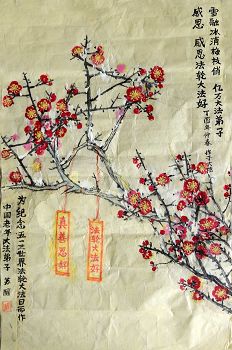 雪融冰消梅枝俏 亿万大法弟子
感恩 感恩法轮大法好
丁酉年仲春
法轮大法好
真善忍好
为纪念五一三世界法轮大法日而作
中国老年大法弟子